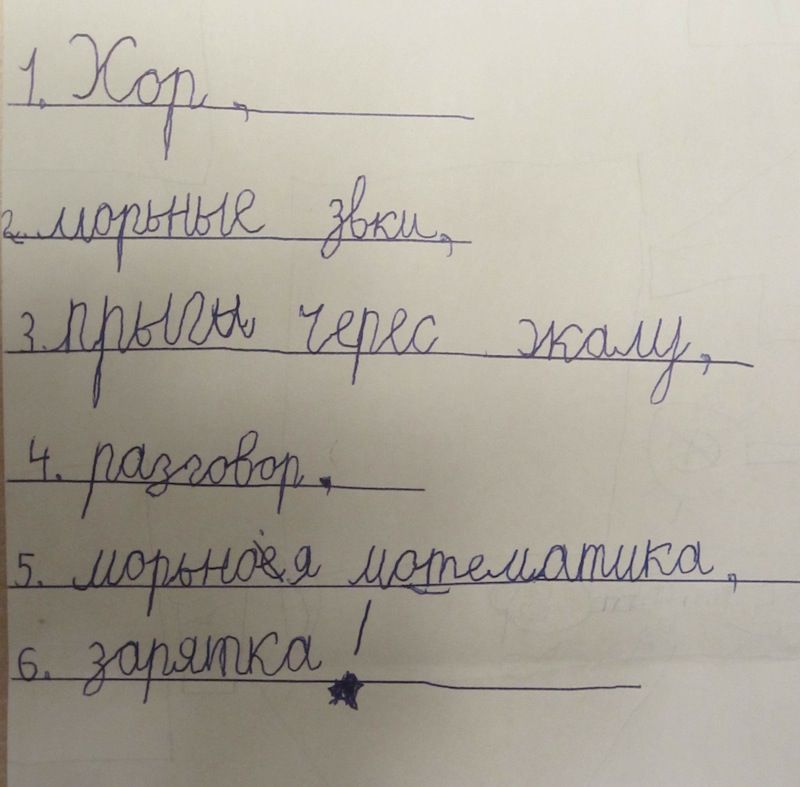 1. Хор,
2. морьные звки,
3. прыгы черес жалу,
4. разговор.
5. морьноея мотематика,
6. зарятка!